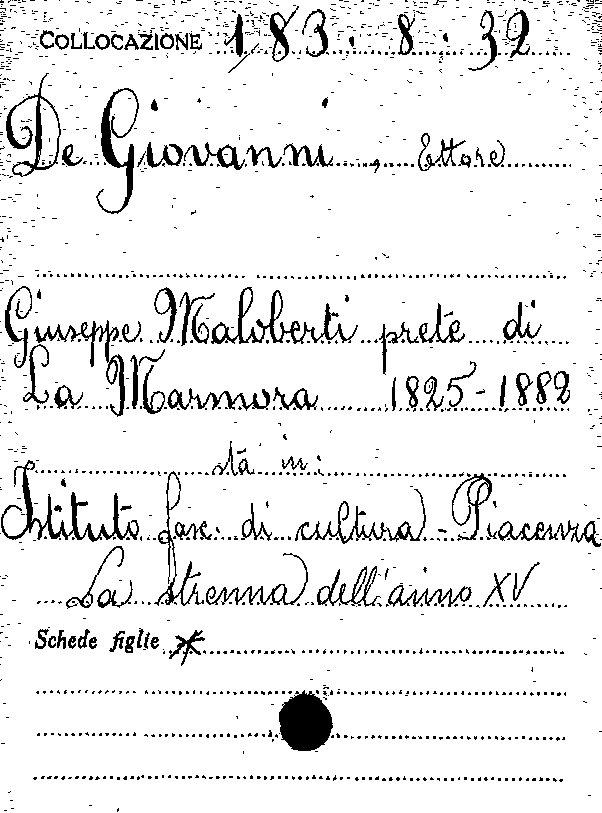 COLLOCAZIONE 183.8.32
De Giovanni, Ettore
Giuseppe Maloberti prete di
La Marmora 1825-1882
sta in:
Istituto fasc. di cultura - Piacenza
La strenna dell'anno XV
Schede figlie *